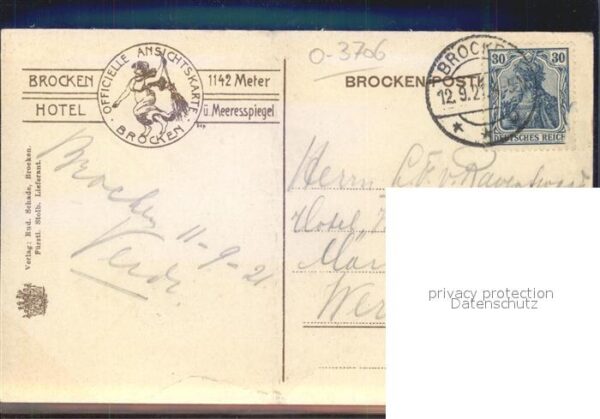 O-3706
BROCKEN
HOTEL
OFFICIELLE ANSICHTSKARTE
BROCKEN
1142 Meter
ü. Meeresspiegel
BROCKEN-POSTK
BROCKE
12.9.2
30 30
DEUTSCHES REICH
Verlag: Rud. Schade, Brocken.
Fürstl. Stolb. Lieferant.
Brocken
11-9-21
Herrn
Hotel
Mär
Wer
privacy protection
Datenschutz